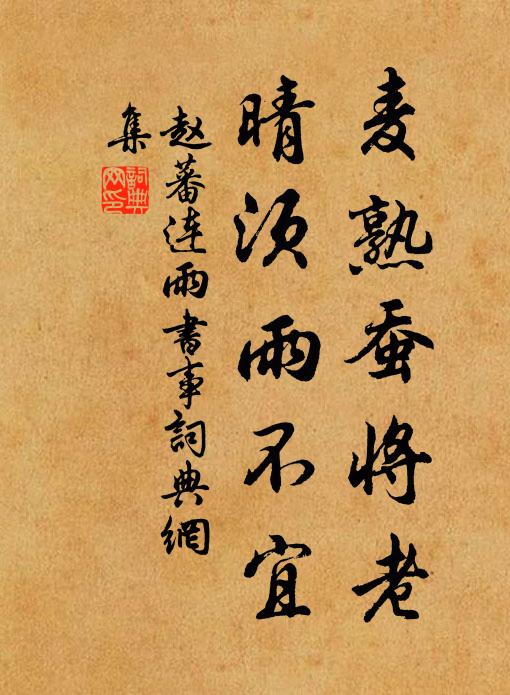 麦熟蚕将老
晴须雨不宜
赵蕃连雨书事词典網
集
詞典网印